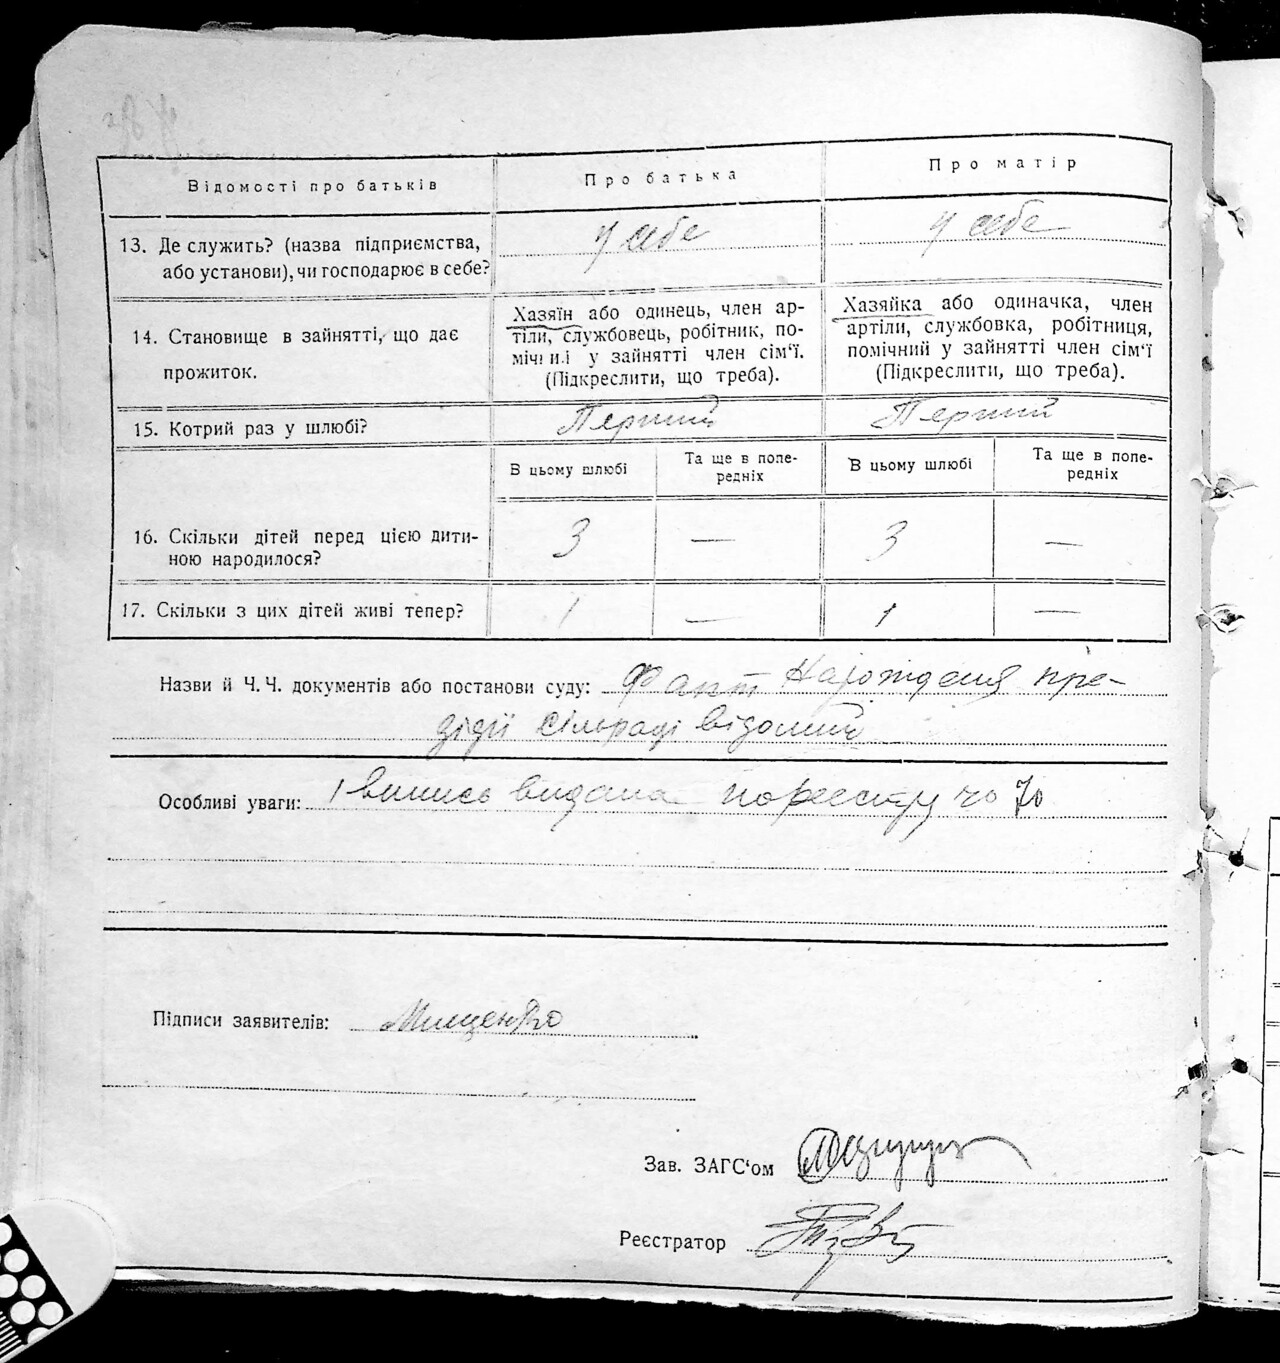 Відомості про батьків
Про батька
Про матір
13. Де служить? (назва підприємства,
або установи), чи господарює в себе?
у себе
у себе
14. Становище в зайнятті, що дає
прожиток.
Хазяїн або одинець, член ар-
тіли, службовець, робітник, по-
мічний у зайнятті член сім'ї.
(Підкреслити, що треба).
Хазяйка або одиначка, член
артіли, службовка, робітниця,
помічний у зайнятті член сім'ї
(Підкреслити, що треба).
15. Котрий раз у шлюбі?
Перший
Перший
В цьому шлюбі
Та ще в попе-
редніх
В цьому шлюбі
Та ще в попе-
редніх
16. Скільки дітей перед цією дити-
ною народилося?
3 — 3 —
17. Скільки з цих дітей живі тепер?
1 — 1 —
Назви й Ч. Ч. документів або постанови суду: Факт Народженя пре-
зідії сільраді відомий
Особливі уваги: 1 випись видана по реестру № 70
Підписи заявителів: Мищенко
Зав. ЗАГС'ом
Реєстратор